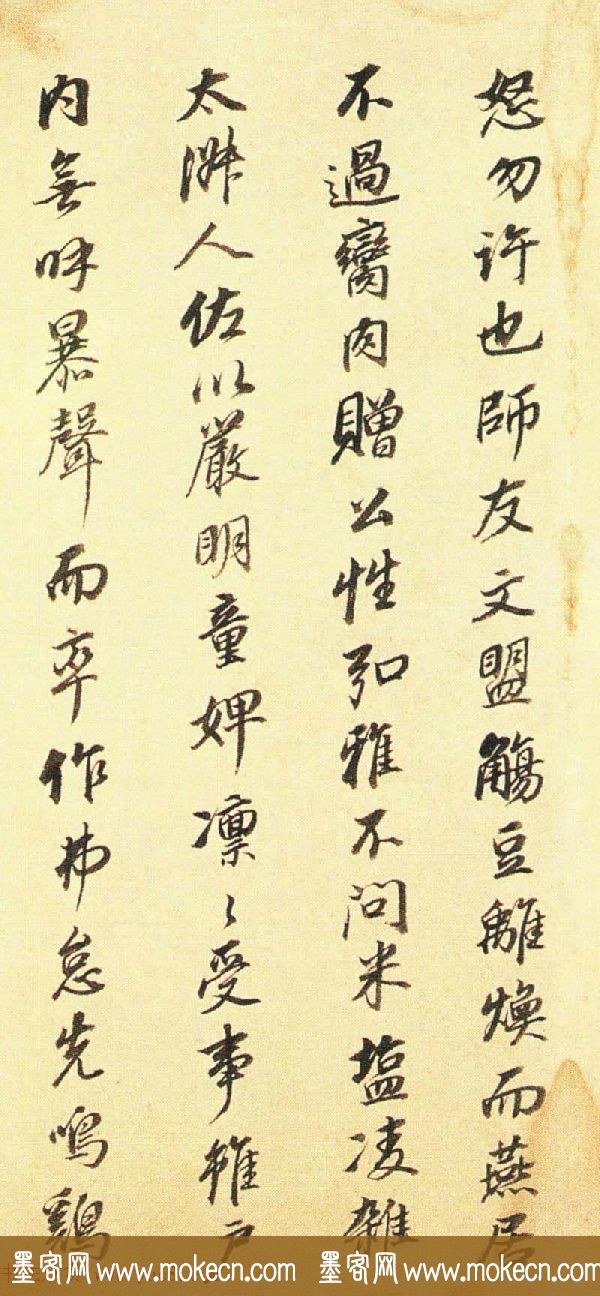 怒勿許也師友文盟觴豆離煥而燕居
不過臠肉贈公性弘雅不問米塩凌雜
太淋人佐以嚴明童婢凛〻受事雖戶
內無呼暴聲而卒作弗怠先鳴鷄
墨客网 www.mokecn.com 墨客网 www.mokecn.com